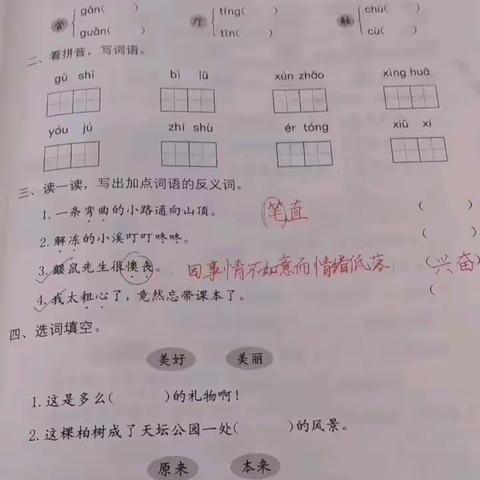 管 gǎn( )
guǎn( )
厅 tīng( )
tīn( )
触 chù( )
cù( )
二、看拼音,写词语。
gù shi bì lǜ xún zhǎo xìng huā
yóu jú zhí shù ér tóng xiū xi
三、读一读,写出加点词语的反义词。
1.一条弯曲的小路通向山顶。 笔直 ( )
2.解冻的小溪叮叮咚咚。 ( )
3.鼹鼠先生很懊丧。 因事情不如意而情绪低落. (兴奋)
4.我太粗心了,竟然忘带课本了。 ( )
四、选词填空。
美好 美丽
1.这是多么( )的礼物啊!
2.这棵柏树成了天坛公园一处( )的风景。
原来 本来